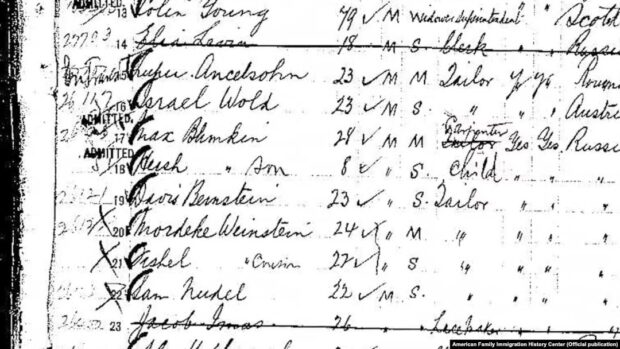 ADMITTED 13 Colin Young 79 M Widower Superintendent " " Scotl
14 Elia Levin 18 M S. Clerk " " Russi
15 Ancelsohn 23 M M Tailor Yes Yes Rouma
16 Israel Wold 23 M S. " " " Austri
ADMITTED. 17 Max Blumkin 28 M M Carpenter Tailor Yes Yes Russi
ADMITTED 18 Hersh " Son 8 " S. Child " " "
19 Davis Bernstein 23 " S. Tailor " " "
20 Mordeke Weinstein 24 " M " " " "
21 Fishel " Cousin 22 " S " " " "
22 Sam Nudel 22 M S. " " " "
23 Jacob Imas 26 " "
American Family Immigration History Center (Official publication)